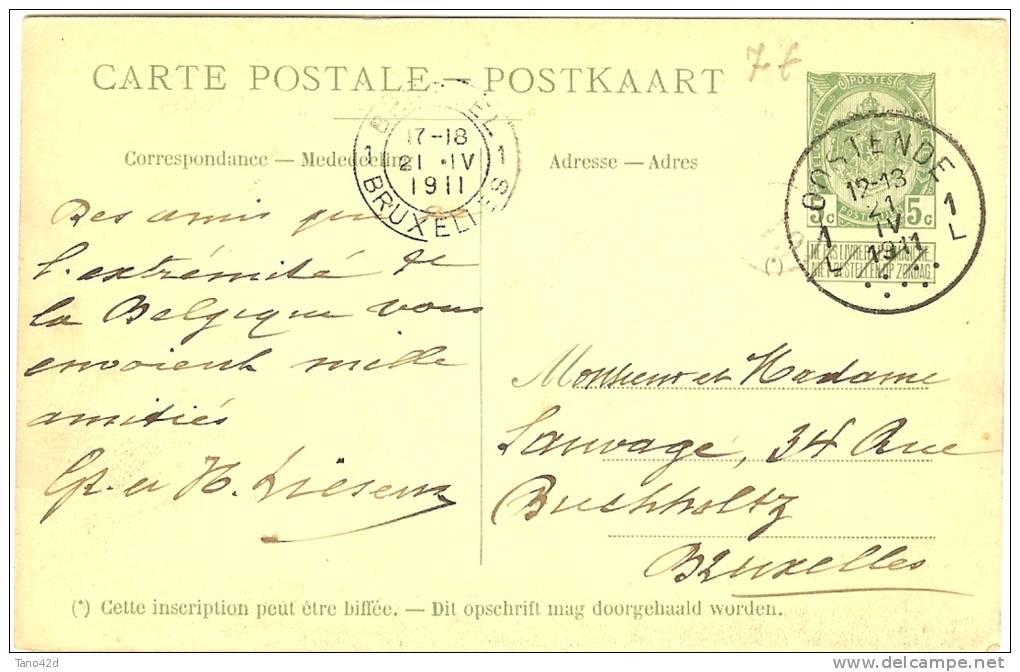 CARTE POSTALE — POSTKAART
7f
POSTES
5c 5c
POSTERIJEN
NE PAS LIVRER LE DIMANCHE.
NIET BESTELLEN OP ZONDAG.
OOSTENDE
12-13
21
IV
1911
1L 1L
BRUSSEL
17-18
21 IV
1911
1 1
BRUXELLES
Correspondance — Mededeeling
Adresse — Adres
Des amis
l'extrémité de
la Belgique vous
envoient mille
amitiés
et H.
Monsieur et Madame
Sauvage, 34 Rue
Buchholtz
Bruxelles
(*) Cette inscription peut être biffée. — Dit opschrift mag doorgehaald worden.
Tano42d
delcampe.net